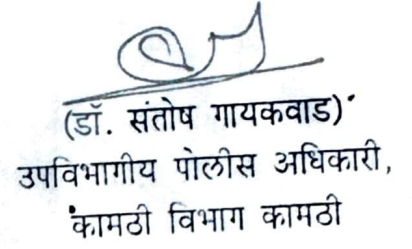 (डॉ. संतोष गायकवाड)
उपविभागीय पोलीस अधिकारी,
कामठी विभाग कामठी